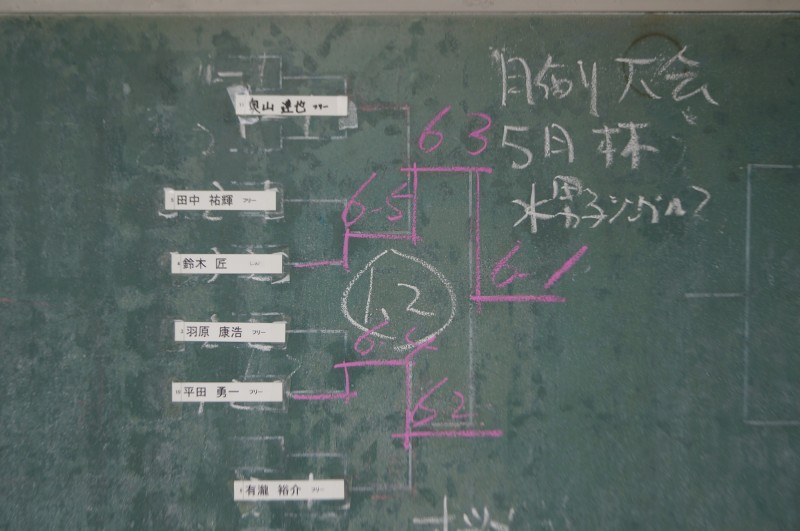 月例大会
5月杯
水男子シングルス
奥山 達也 フリー
6 3
田中 祐輝 フリー
6-5
鈴木 匠
6-1
1,2
羽原 康浩 フリー
6-4
平田 勇一 フリー
6 2
有瀧 裕介 フリー